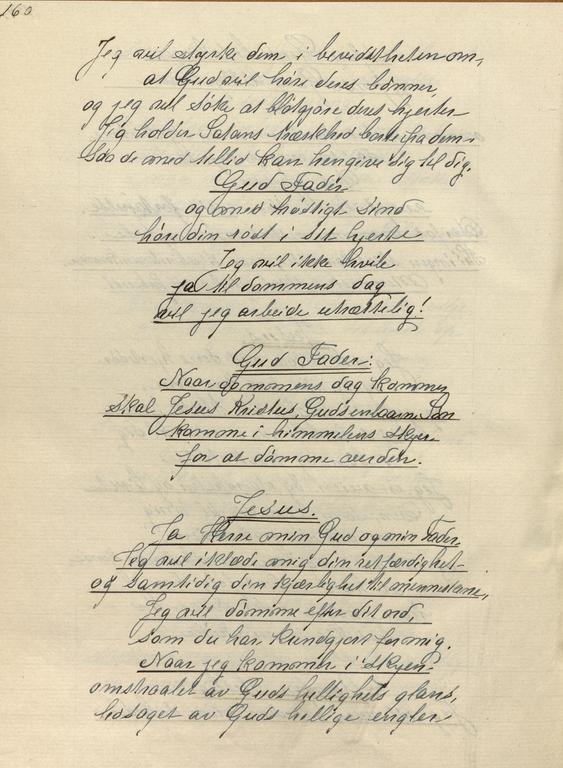 160
Jeg vil styrke dem i bevidstheten om,
at Gud vil høre deres bønner,
og jeg vil søke at blötgjøre deres hjerter
Jeg holder Satans træskhed borte fra dem
saa de med tillid kan hengive sig til dig,
Gud Fader
og med frøstigt sind
høre din røst i sit hjerte
Jeg vil ikke hvile
ja til dommens dag
vil jeg arbeide utrættelig!
Gud Fader:
Naar dommens dag kommer
skal Jesus Kristus, Guds enbaarne Søn
komme i himmelens skyer
for at dömme verden.
Jesus.
Ja Herre min Gud og min Fader,
Jeg vil iklæde mig din retfærdighet
og samtidig din kjærlighet til menneskene,
Jeg vil dömme efter dit ord,
som du har kundgjort for mig.
Naar jeg kommer i skyen
omstraalet av Guds hellighets glans,
ledsaget av Guds hellige engler